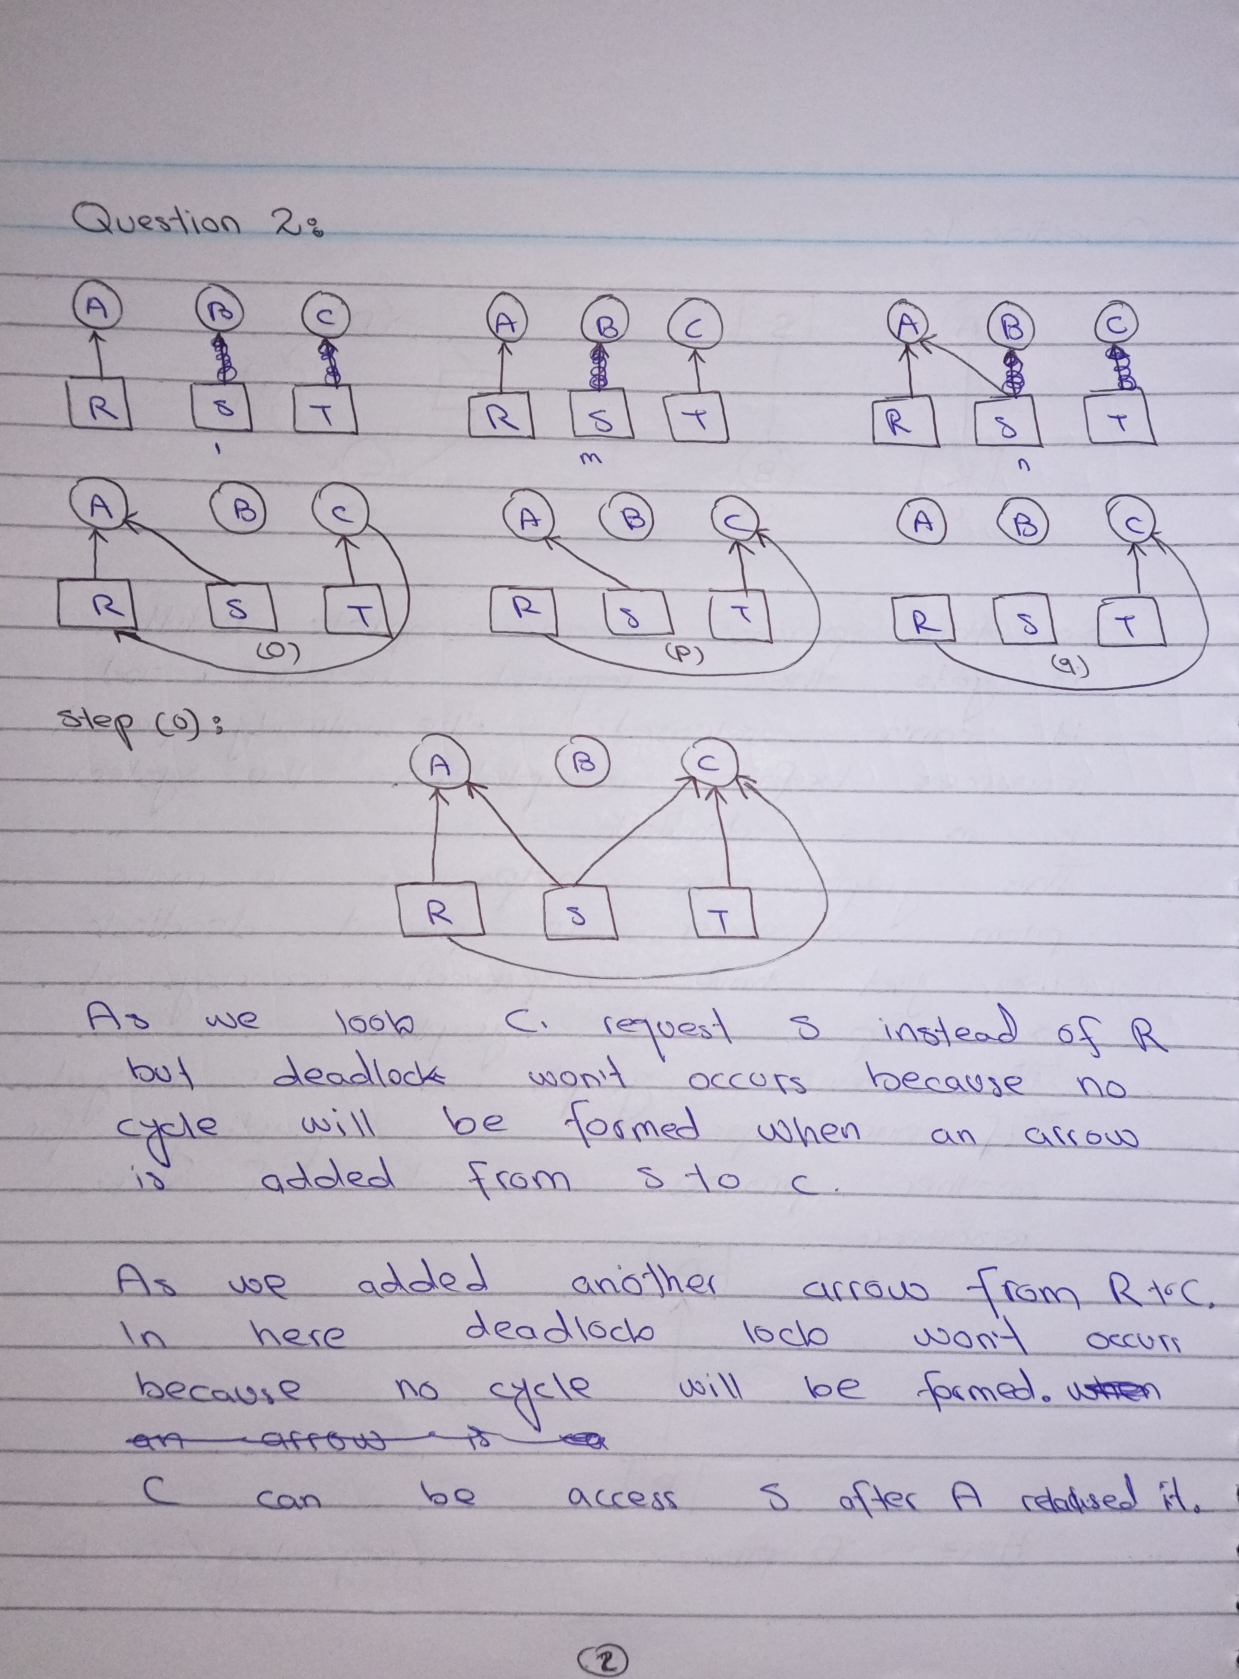 Question 2:
A B C A B C A B C
R S T R S T R S T
m n
A B C A B C A B C
R S T R S T R S T
(O) (P) (q)
step (O):
A B C
R S T
As we look C. request S instead of R
but deadlock won't occurs because no
cycle will be formed when an arrow
is added from S to C.
As we added another arrow from R to C.
In here deadlock lock won't occurs
because no cycle will be formed. when
an arrow is a
C can be access S after A relaused it.
2